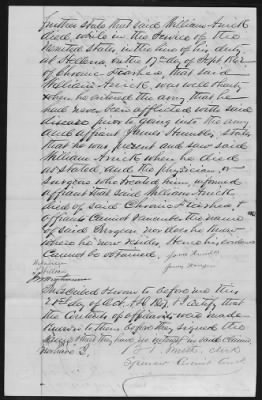 further state that said William Arnett
died, while in the Service of the
United States, in the line of his duty
at Helena, on the 17th day of Sept 1862
of Chronic Diarrhea, that said
William Arnett, was well healthy
when he entered the army that he
had never been afflicted with said
disease prior to going into the army
and affiant James states
that he was present and saw said
William Arnett when he died
as stated, and the physician, or
Surgeon who treated him, informed
affiant that said William Arnett
died of said Chronic Diarrhea, &
affiant Cannot remember the name
of said Surgeon nor does he know
where he now resides, Hence his evidence
Cannot be obtained.
James
Subscribed & Sworn to before me this
21st day of Oct. & I Certify that
the Contents of affidavit was made
known to them before they signed the
same & that they have no interest in said Claim
Smith, Clerk
Spencer Circuit Court